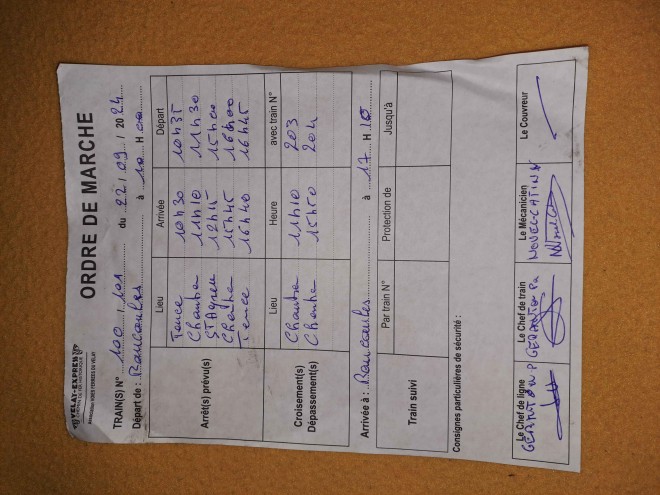 VELAY-EXPRESS
ORDRE DE MARCHE
TRAIN(S) N° 100 / 101 du 22 / 09 / 2024
Départ de : Raucoules à 10 H 00
Lieu Arrivée Départ
Arrêt(s) prévu(s)
Tence 10h30 10h35
11h10 11h30
St Agrève 12h15 15h00
15h45 16h00
Tence 16h40 16h45
Croisement(s)
Dépassement(s)
Lieu Heure avec train N°
11h10 203
15h50 204
Arrivée à : Raucoules à 17 H
Train suivi
Par train N° Protection de Jusqu'à
Consignes particulières de sécurité :
Le Chef de ligne Le Chef de train Le Mécanicien Le Couvreur